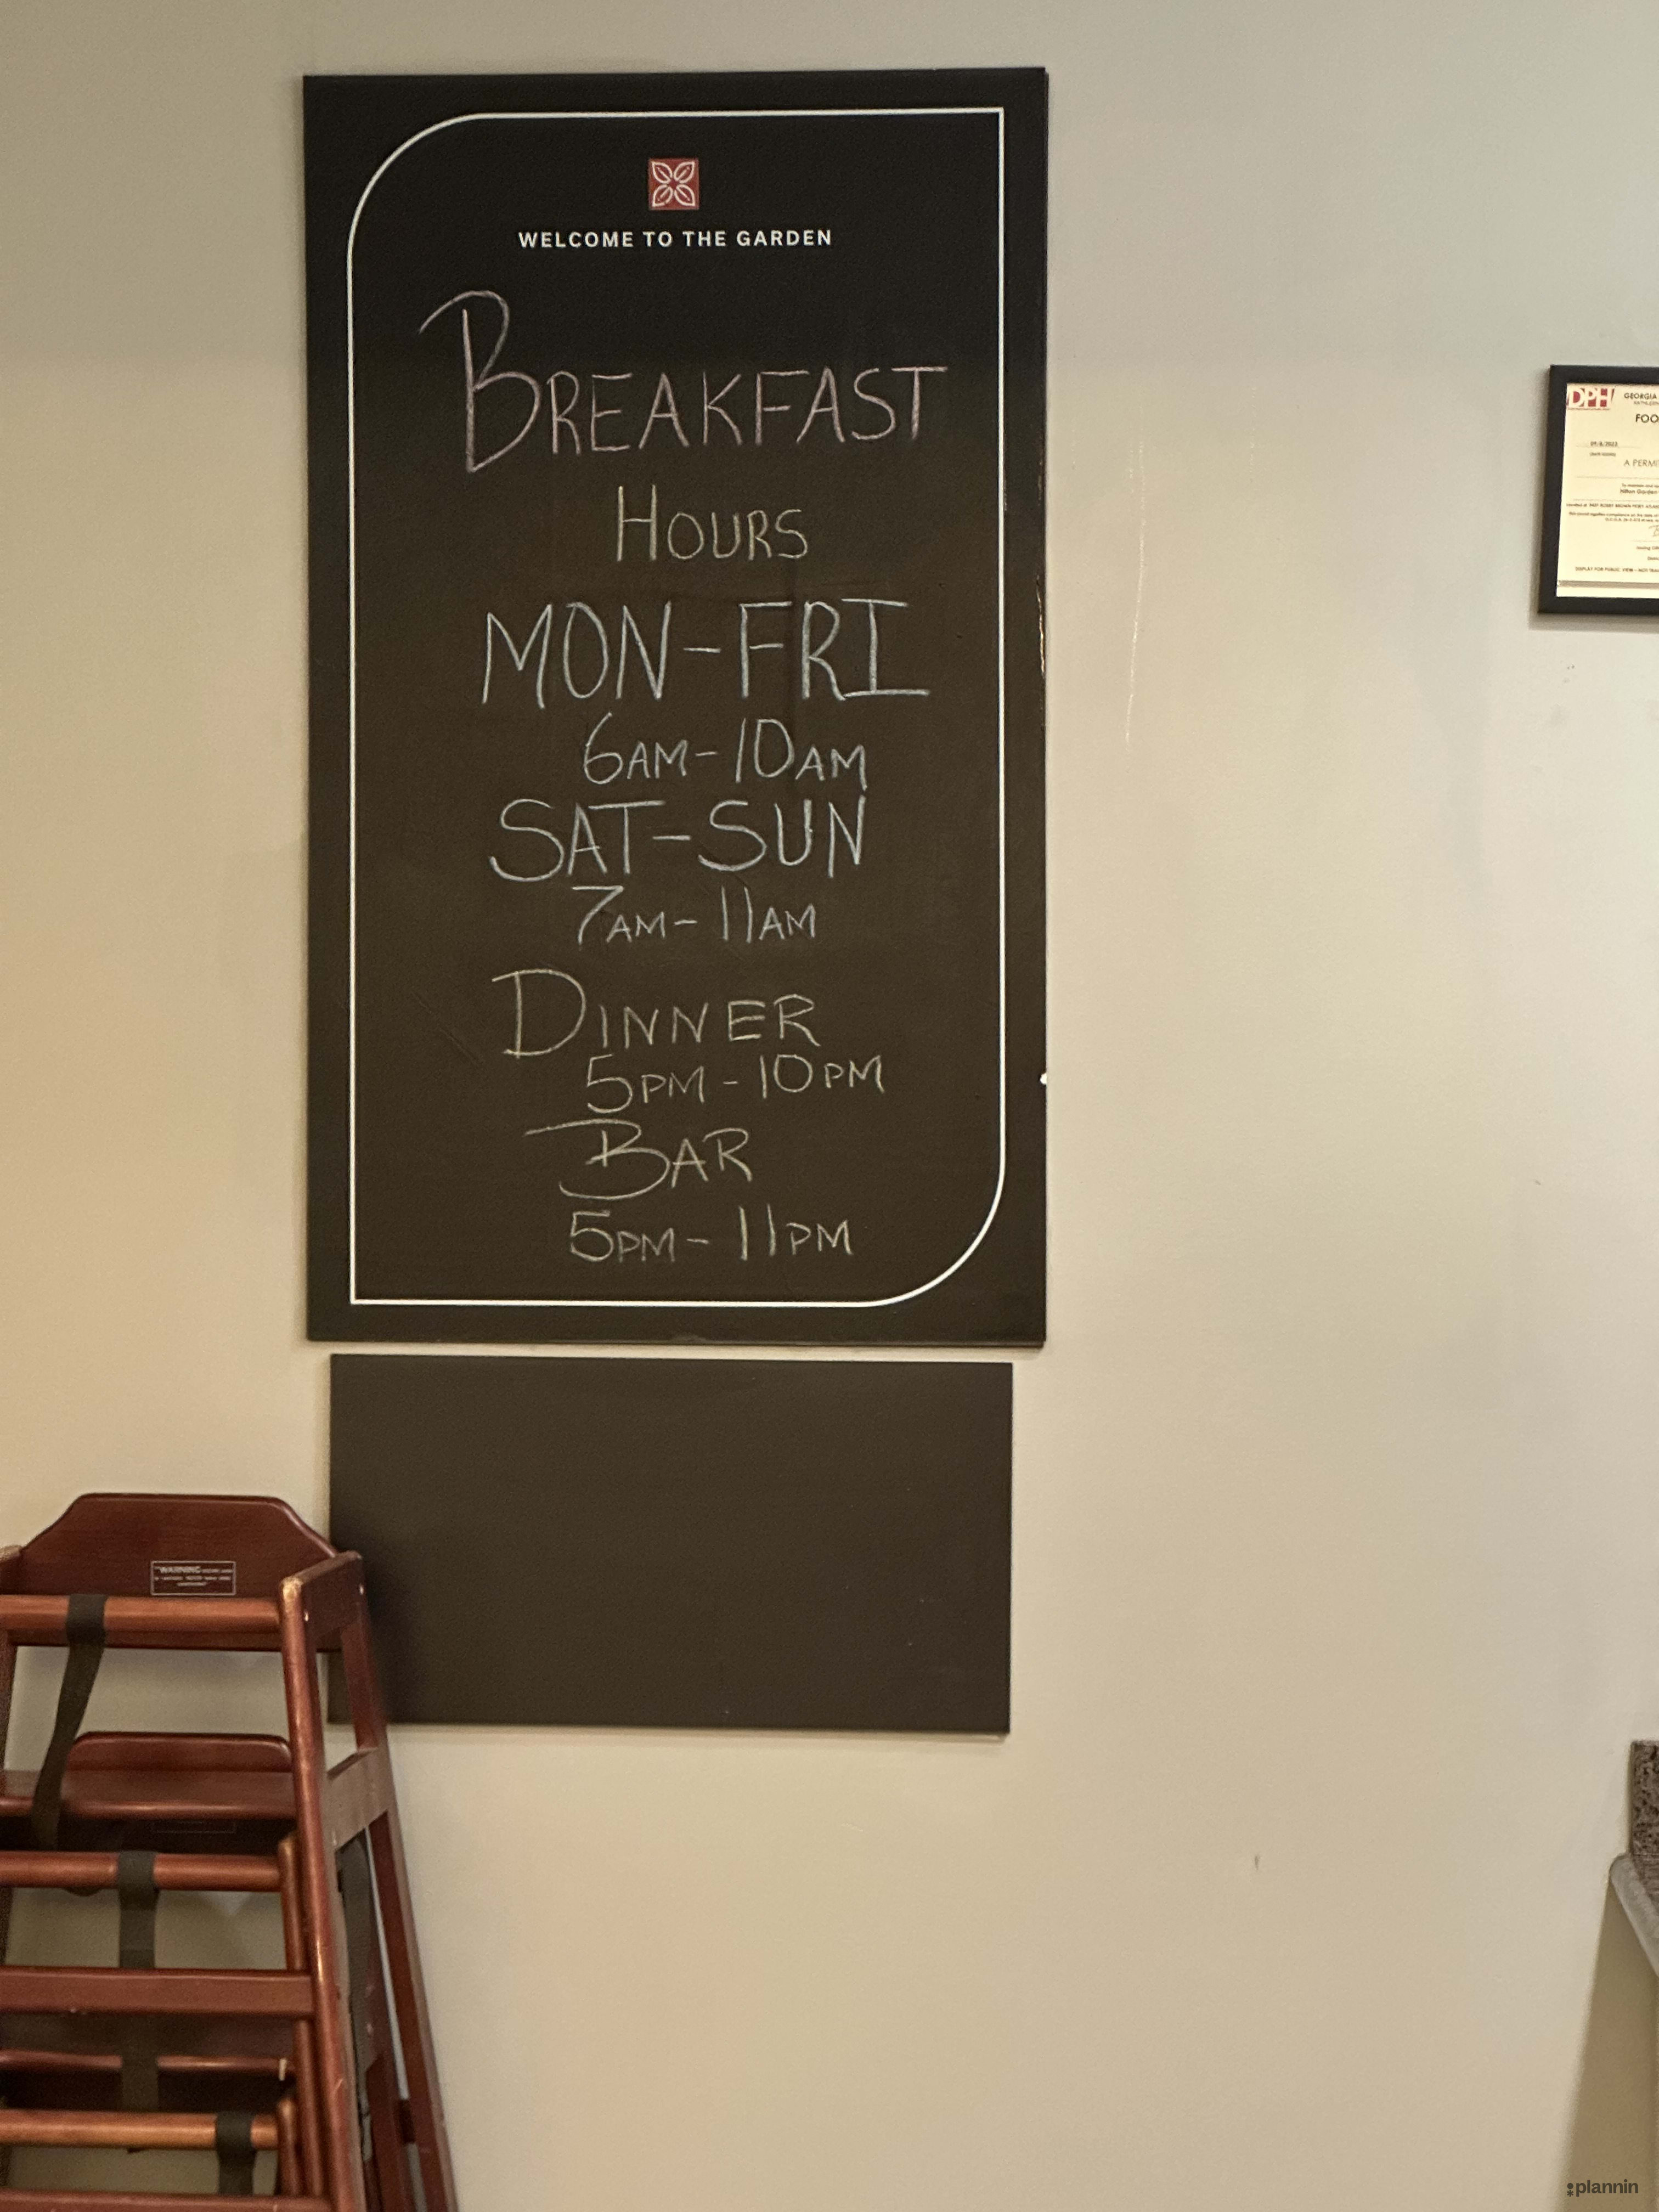 WELCOME TO THE GARDEN
BREAKFAST
HOURS
MON-FRI
6AM-10AM
SAT-SUN
7AM-11AM
DINNER
5PM-10PM
BAR
5PM-11PM
DPH
GEORGIA
FOO
A PERMI
Hilton Garden
DISPLAY FOR PUBLIC VIEW - NOT TRA
"WARNING
plannin